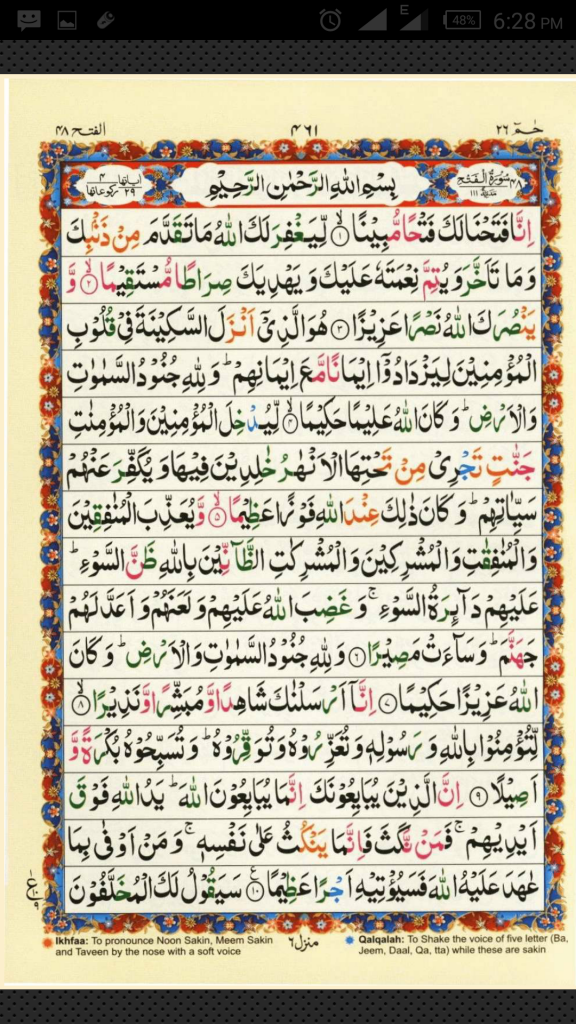 E 48% 6:28 PM
الفتح ۴۸ ۴۶۱ حٰمٓ ۲۶
اٰیاتها ۲۹ رکوعاتها ۴ بِسْمِ اللهِ الرَّحْمٰنِ الرَّحِيْمِ ۴۸ سُوْرَةُ الْفَتْحِ مَدَنِيَّةٌ ۱۱۱
اِنَّا فَتَحْنَا لَكَ فَتْحًا مُّبِيْنًا ۙ﴿۱﴾ لِّيَغْفِرَ لَكَ اللهُ مَا تَقَدَّمَ مِنْ ذَنْۢبِكَ
وَ مَا تَاَخَّرَ وَ يُتِمَّ نِعْمَتَهٗ عَلَيْكَ وَ يَهْدِيَكَ صِرَاطًا مُّسْتَقِيْمًا ۙ﴿۲﴾ وَّ
يَنْصُرَكَ اللهُ نَصْرًا عَزِيْزًا ﴿۳﴾ هُوَ الَّذِيْۤ اَنْزَلَ السَّكِيْنَةَ فِيْ قُلُوْبِ
الْمُؤْمِنِيْنَ لِيَزْدَادُوْۤا اِيْمَانًا مَّعَ اِيْمَانِهِمْ ؕ وَ لِلّٰهِ جُنُوْدُ السَّمٰوٰتِ
وَ الْاَرْضِ ؕ وَ كَانَ اللهُ عَلِيْمًا حَكِيْمًا ۙ﴿۴﴾ لِّيُدْخِلَ الْمُؤْمِنِيْنَ وَ الْمُؤْمِنٰتِ
جَنّٰتٍ تَجْرِيْ مِنْ تَحْتِهَا الْاَنْهٰرُ خٰلِدِيْنَ فِيْهَا وَ يُكَفِّرَ عَنْهُمْ
سَيِّاٰتِهِمْ ؕ وَ كَانَ ذٰلِكَ عِنْدَ اللهِ فَوْزًا عَظِيْمًا ۙ﴿۵﴾ وَّ يُعَذِّبَ الْمُنٰفِقِيْنَ
وَ الْمُنٰفِقٰتِ وَ الْمُشْرِكِيْنَ وَ الْمُشْرِكٰتِ الظَّآنِّيْنَ بِاللهِ ظَنَّ السَّوْءِ ؕ
عَلَيْهِمْ دَآىِٕرَةُ السَّوْءِ ۚ وَ غَضِبَ اللهُ عَلَيْهِمْ وَ لَعَنَهُمْ وَ اَعَدَّ لَهُمْ
جَهَنَّمَ ؕ وَ سَآءَتْ مَصِيْرًا ﴿۶﴾ وَ لِلّٰهِ جُنُوْدُ السَّمٰوٰتِ وَ الْاَرْضِ ؕ وَ كَانَ
اللهُ عَزِيْزًا حَكِيْمًا ﴿۷﴾ اِنَّاۤ اَرْسَلْنٰكَ شَاهِدًا وَّ مُبَشِّرًا وَّ نَذِيْرًا ۙ﴿۸﴾
لِّتُؤْمِنُوْا بِاللهِ وَ رَسُوْلِهٖ وَ تُعَزِّرُوْهُ وَ تُوَقِّرُوْهُ ؕ وَ تُسَبِّحُوْهُ بُكْرَةً وَّ
اَصِيْلًا ﴿۹﴾ اِنَّ الَّذِيْنَ يُبَايِعُوْنَكَ اِنَّمَا يُبَايِعُوْنَ اللهَ ؕ يَدُ اللهِ فَوْقَ
اَيْدِيْهِمْ ۚ فَمَنْ نَّكَثَ فَاِنَّمَا يَنْكُثُ عَلٰى نَفْسِهٖ ۚ وَ مَنْ اَوْفٰى بِمَا
عٰهَدَ عَلَيْهُ اللهَ فَسَيُؤْتِيْهِ اَجْرًا عَظِيْمًا ﴿۱۰﴾ سَيَقُوْلُ لَكَ الْمُخَلَّفُوْنَ
Ikhfaa: To pronounce Noon Sakin, Meem Sakin and Taveen by the nose with a soft voice
منزل ۶
Qalqalah: To Shake the voice of five letter (Ba, Jeem, Daal, Qa, tta) while these are sakin